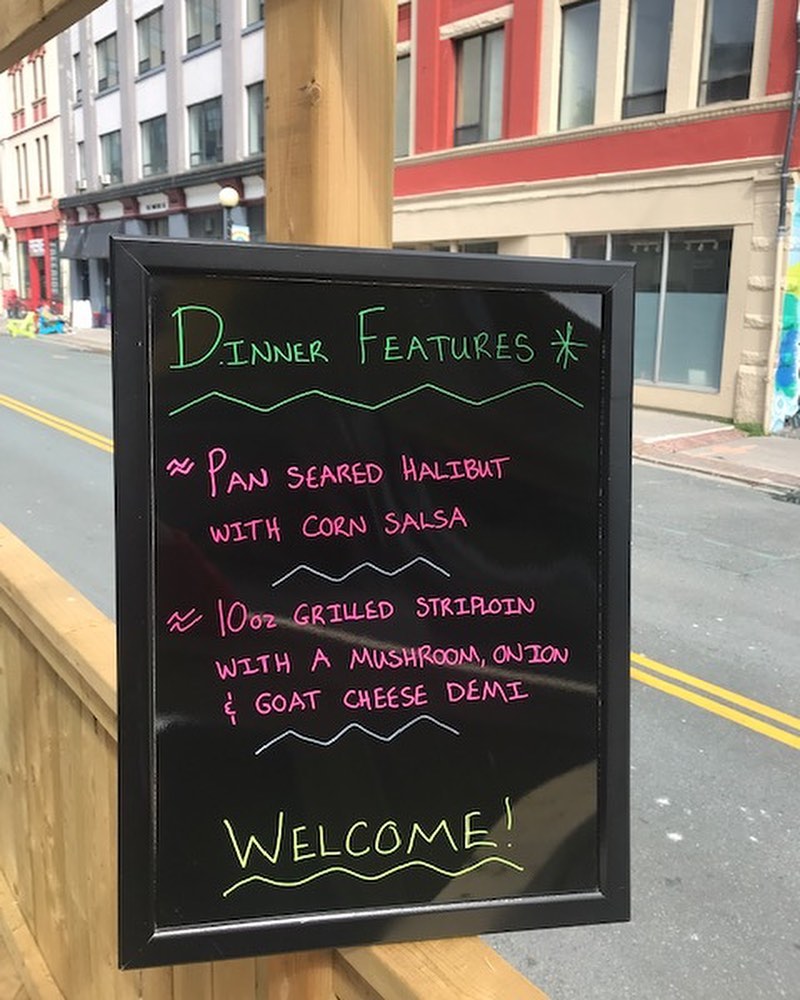 DINNER FEATURES *
≈ PAN SEARED HALIBUT
WITH CORN SALSA
≈ 10oz GRILLED STRIPLOIN
WITH A MUSHROOM, ONION
& GOAT CHEESE DEMI
WELCOME!